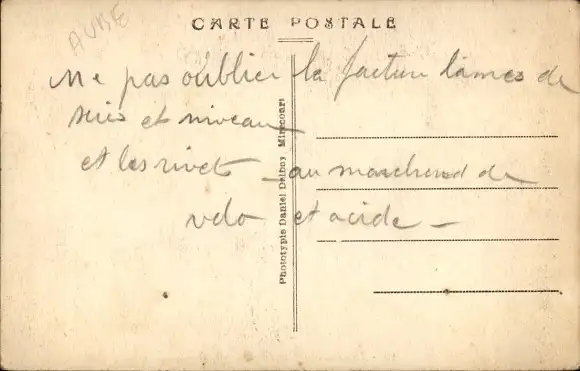 AUBE
CARTE POSTALE
Ne pas oublier la facture lames de
scies et niveau
et les rivets - au marchand de
velo et acide -
Phototypie Daniel Delboy Mirecourt